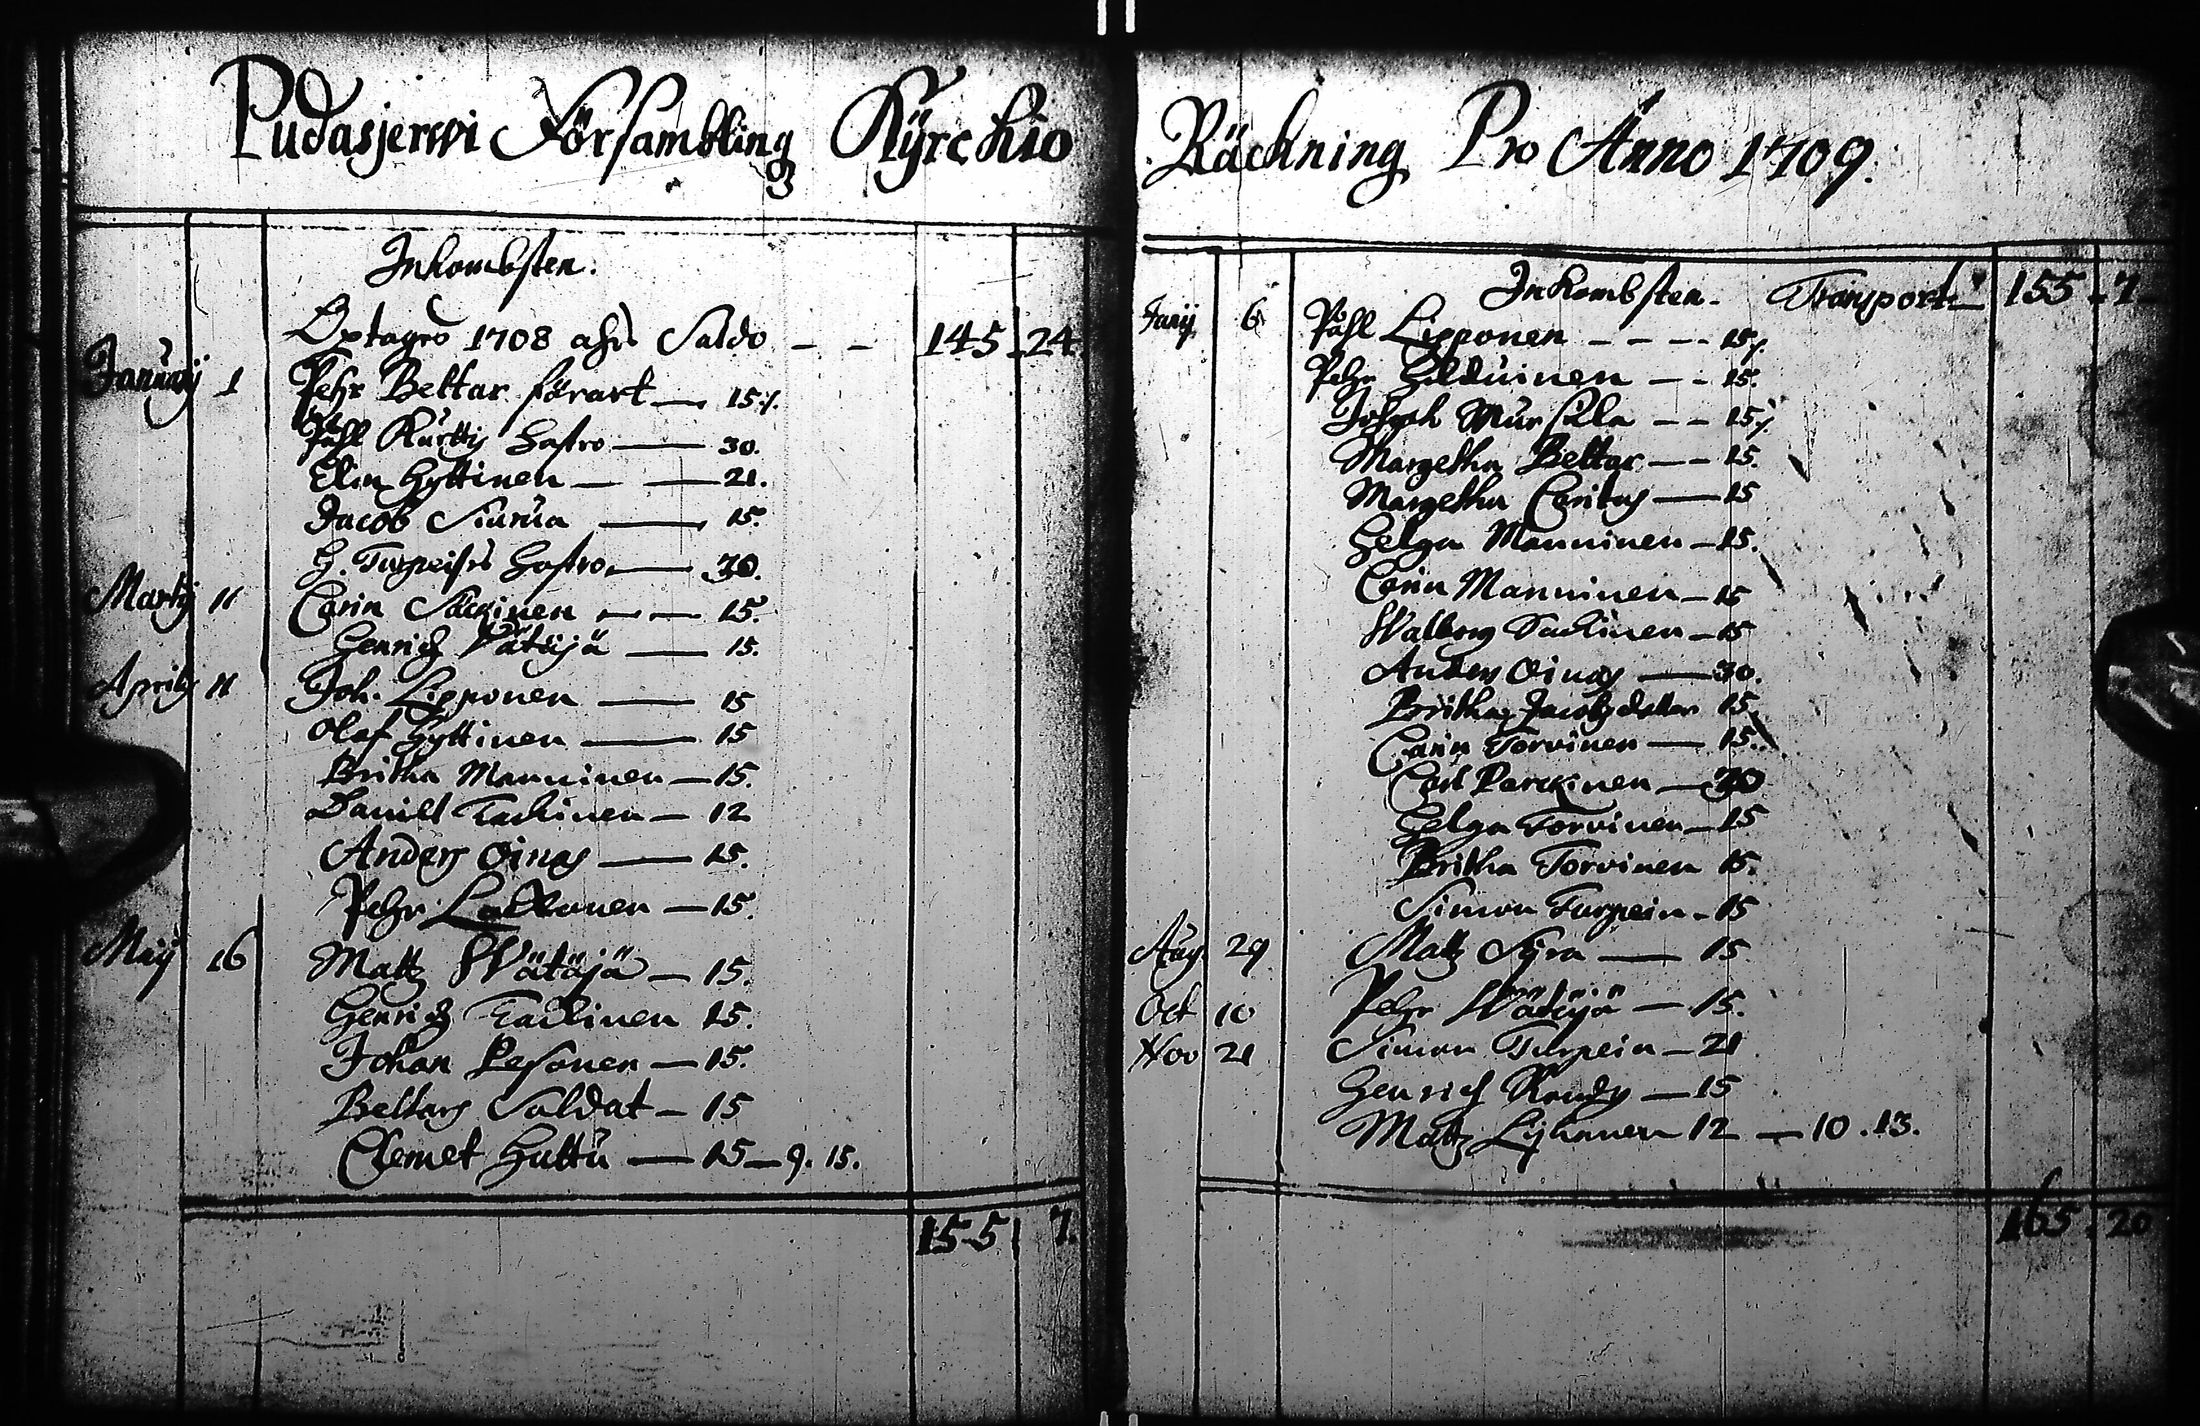 Pudasjerwi Försambling Kÿrckio
Inkombsten.
Optages 1708 åhrs Saldo — — 145. 24
Januarij 1 Pehr Beltar förart — 15.
Påhl Kurttis Hustro — 30.
Elin Hyttinen — — 21.
Jacob Siurua — 15.
H. Turpeises Hustro — 30.
Martij 11 Carin Säckinen — — 15.
Henrich Wätäjä — 15.
Aprilis 11 Joh. Lipponen — 15
Olaf Hyttinen — 15
Britha Manninen — 15.
Daniel Tackinen — 12
Anders Oinas — 15.
Pehr — 15.
Maij 16 Matz Wätäjä — 15.
Henrich Tackinen 15.
Johan Pesonen — 15.
Beltars Soldat — 15
Clemet Huttu — 15 — 9. 15.
155 7.
Räckning Pro Anno 1709.
Inkombsten. Transport 155. 7
6 Påhl Lipponen — — — 15
Pehr — — 15.
Joseph Mursula — — 15
Margetha Beltar — — 15.
Margetha — 15
Helga Manninen — 15.
Carin Manninen — 15
Walborg Tackinen — 15
Anders Oinas — 30.
Britha Jacobsdotter 15
Carin Torvinen — 15.
Carl Parckinen — 30
Helga Torvinen — 15
Britha Torvinen 15.
Simon Turpein — 15
Aug 29 Matz Syra — 15
Oct 10 Pehr Wätäjä — 15.
Nov 21 Simon Turpein — 21
Henrich — 15
Matz 12 — 10. 13.
165. 20